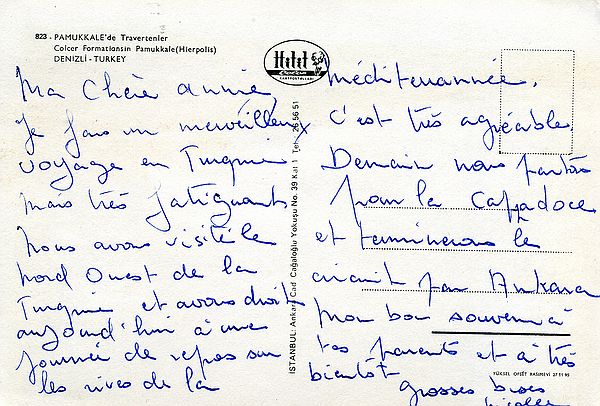 823 - PAMUKKALE'de Travertenler
Colcer Formationsin Pamukkale(Hierpolis)
DENIZLI - TURKEY
Hitit
KARTPOSTALLARI
Ma Chère Annie
Je fais un merveilleux
voyage en Turquie
mais très fatiguant
Nous avons visité le
Nord Ouest de la
Turquie et avons droit
aujourd'hui à une
journée de repos sur
les rives de la
İSTANBUL: Ankara Cad Cağaloğlu Yokuşu No. 39 Kat 1 Tel: 26 56 51
méditerrannée.
C'est très agréable.
Demain nous partons
pour la Cappadoce
et terminerons le
circuit par Ankara
Mon bon souvenir à
tes parents et à très
bientôt
grosses bises
YÜKSEL OFSET BASIMEVİ 27 11 95